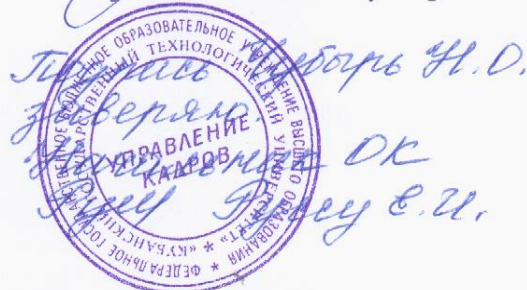 Подпись Чубырь Н.О.
заверяю.
Начальник ОК
Е.И.
ФЕДЕРАЛЬНОЕ ГОСУДАРСТВЕННОЕ БЮДЖЕТНОЕ ОБРАЗОВАТЕЛЬНОЕ УЧРЕЖДЕНИЕ ВЫСШЕГО ОБРАЗОВАНИЯ
«КУБАНСКИЙ ГОСУДАРСТВЕННЫЙ ТЕХНОЛОГИЧЕСКИЙ УНИВЕРСИТЕТ»
УПРАВЛЕНИЕ
КАДРОВ